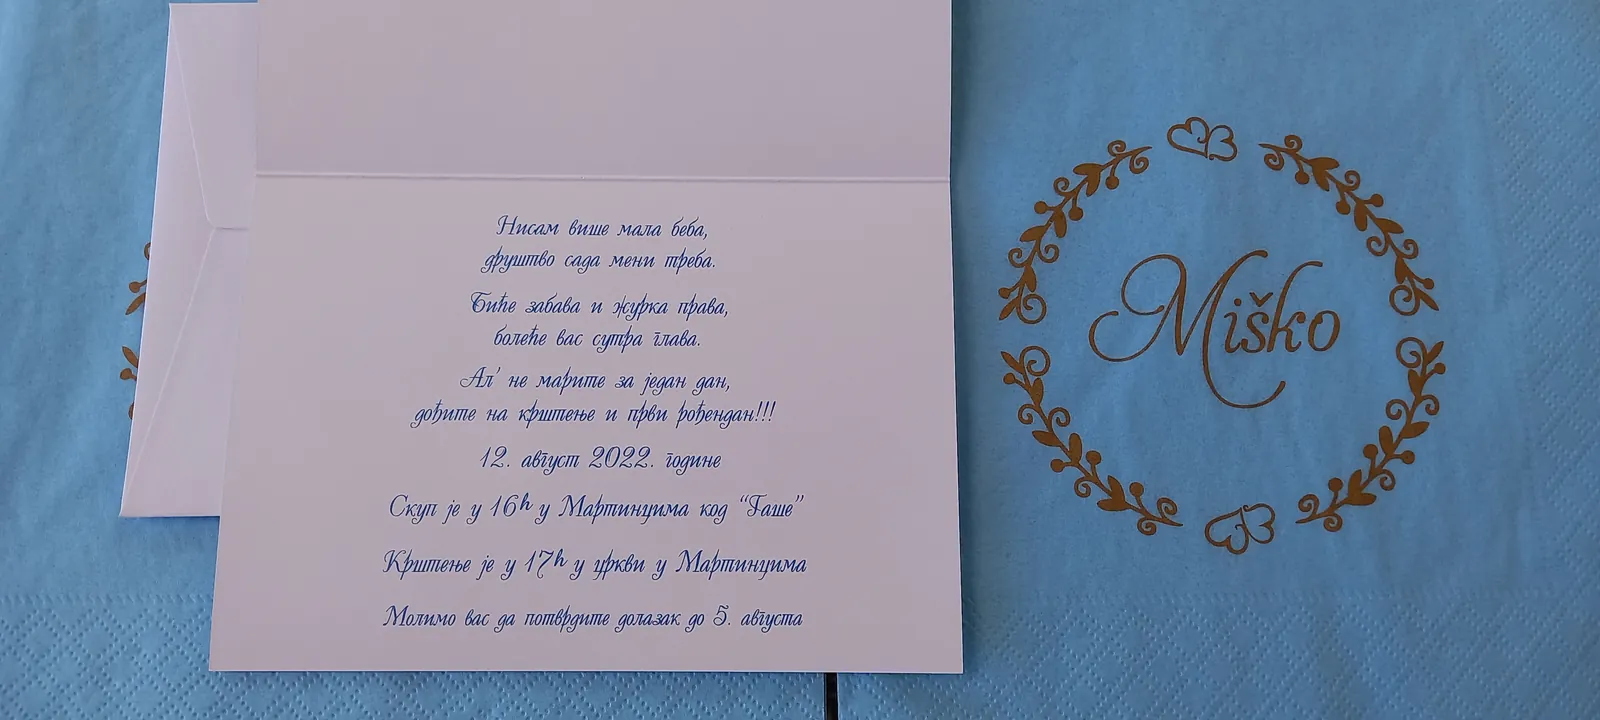 Нисам више мала беба,
друштво сада мени треба.
Биће забава и журка права,
болеће вас сутра глава.
Ал' не марите за један дан,
дођите на крштење и први рођендан!!!
12. август 2022. године
Скуп је у 16h у Мартинцима код “Гаше”
Крштење је у 17h у цркви у Мартинцима
Молимо вас да потврдите долазак до 5. августа
Miško